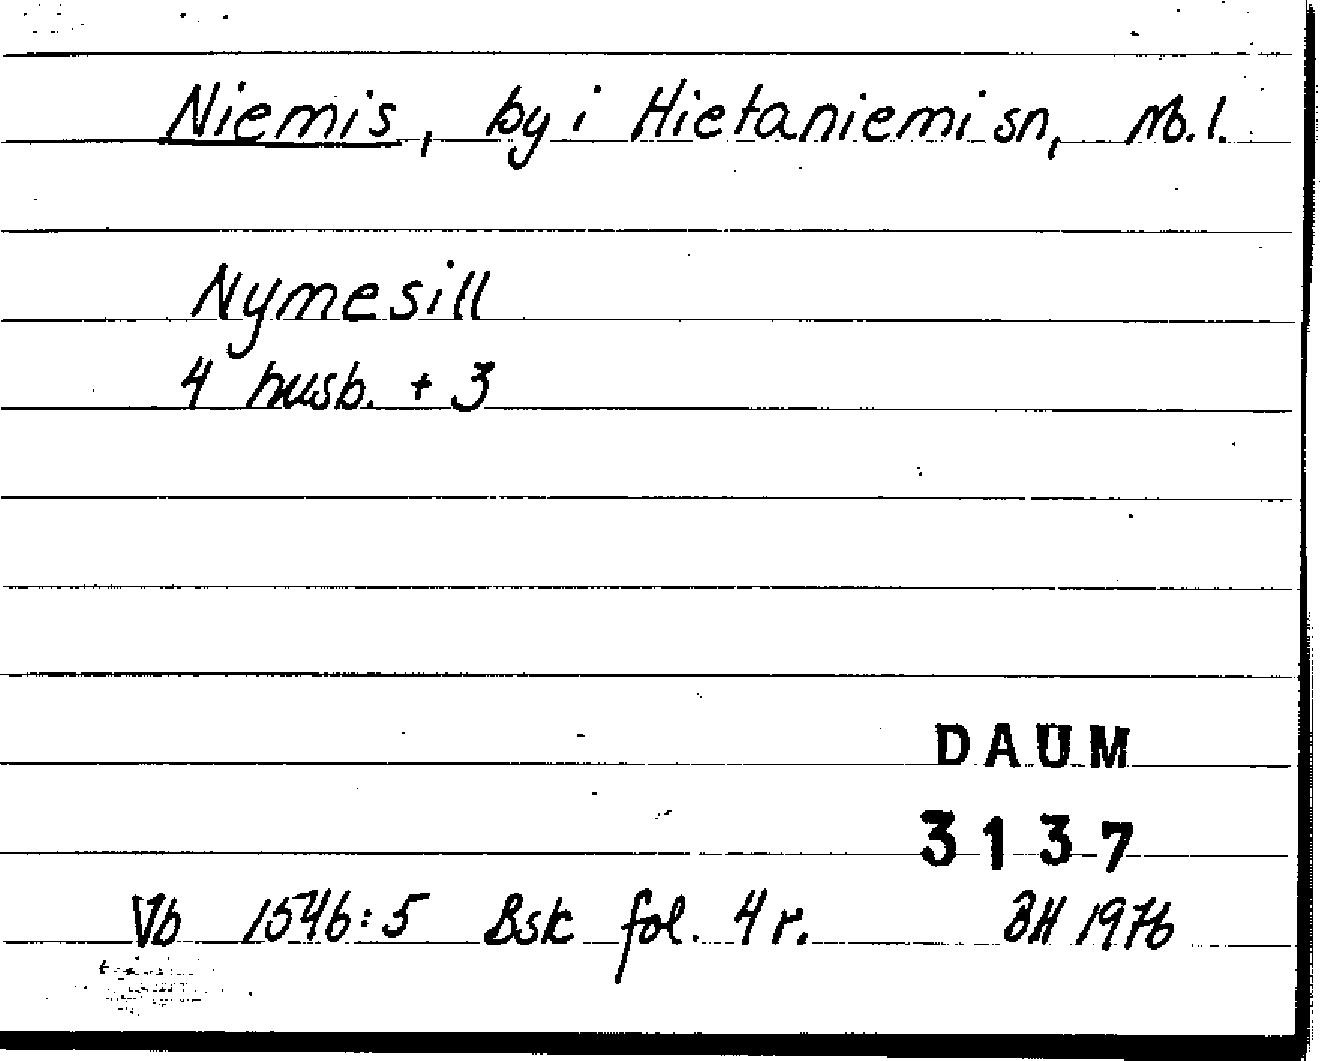 Niemis, by i Hietaniemi sn, Nb.l.
Nymesill
4 husb. + 3
DAUM
3137
Vb 1546:5 Bsk fol. 4 r. BH 1976